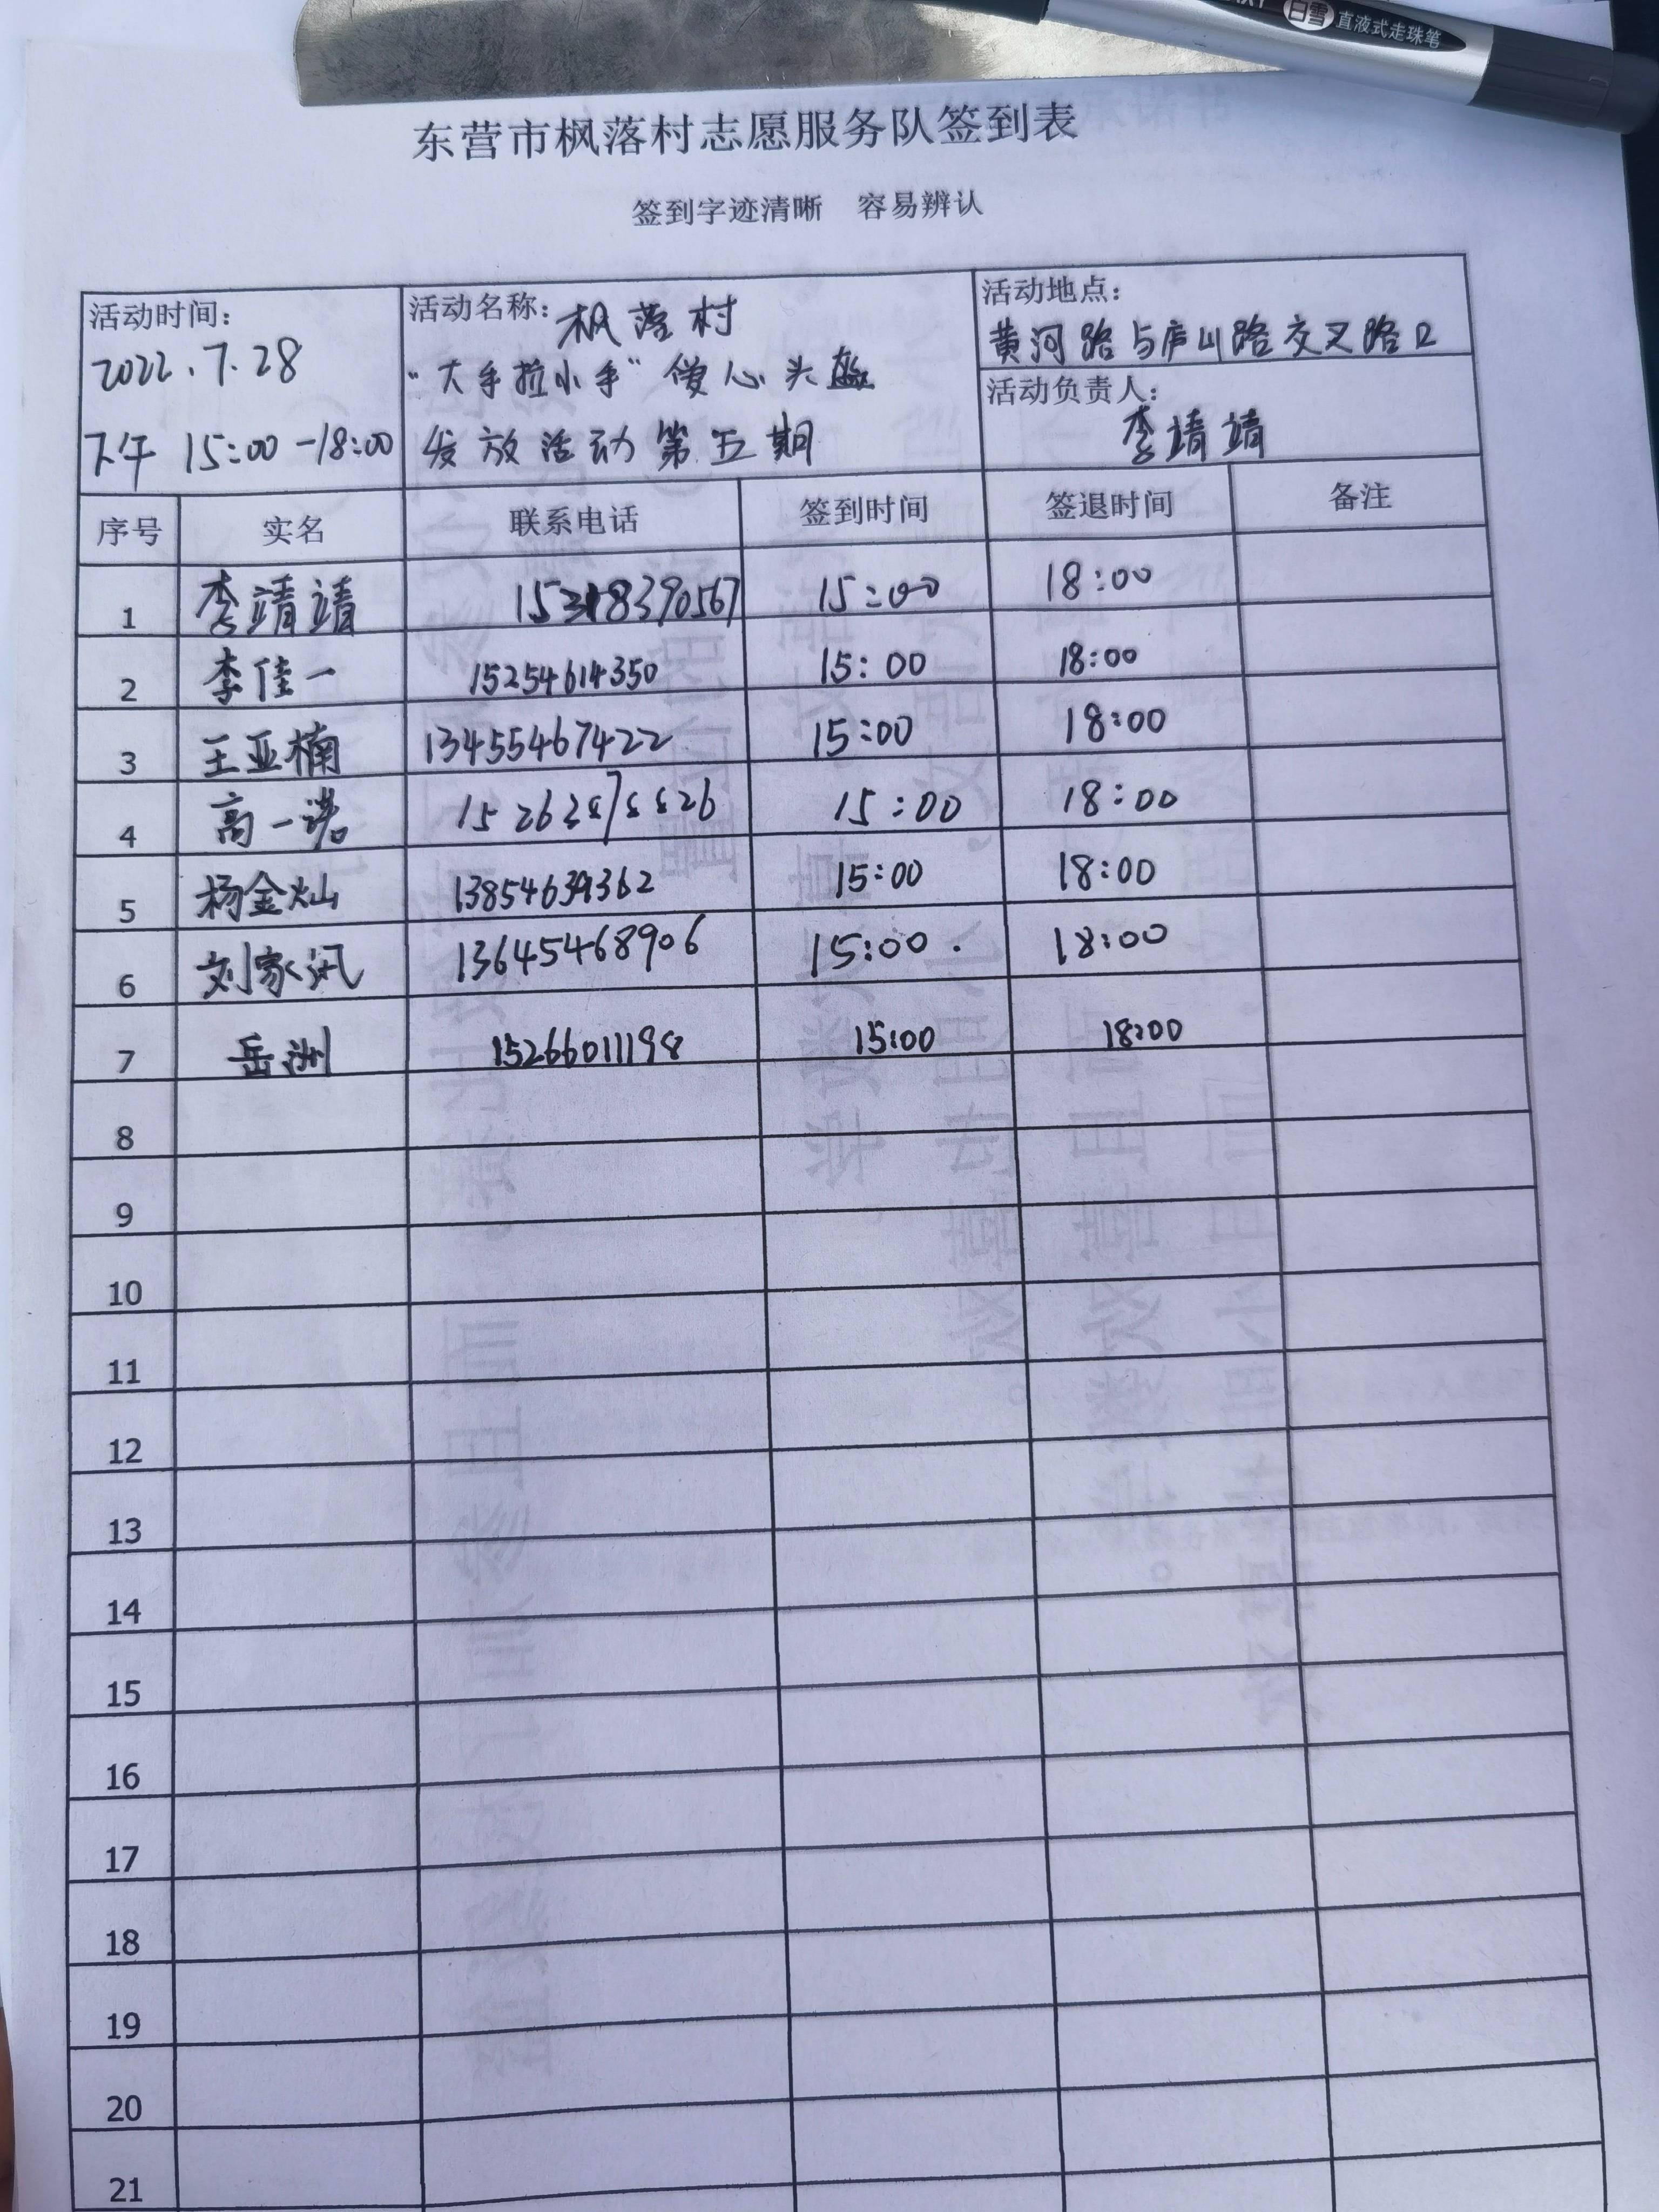 白雪 直液式走珠笔
东营市枫落村志愿服务队签到表
签到字迹清晰 容易辨认
活动时间:
2022.7.28
下午 15:00-18:00
活动名称: 枫落村
"大手拉小手" 暖心头盔
发放活动第五期
活动地点:
黄河路与庐山路交叉路口
活动负责人:
李靖靖
序号 实名 联系电话 签到时间 签退时间 备注
1 李靖靖 15318390567 15:00 18:00
2 李佳一 15254614350 15:00 18:00
3 王亚楠 13455467422 15:00 18:00
4 高一诺 15:00 18:00
5 杨金灿 15:00 18:00
6 刘家汛 13645468906 15:00 18:00
7 岳洲 15266011198 15:00 18:00
8
9
10
11
12
13
14
15
16
17
18
19
20
21